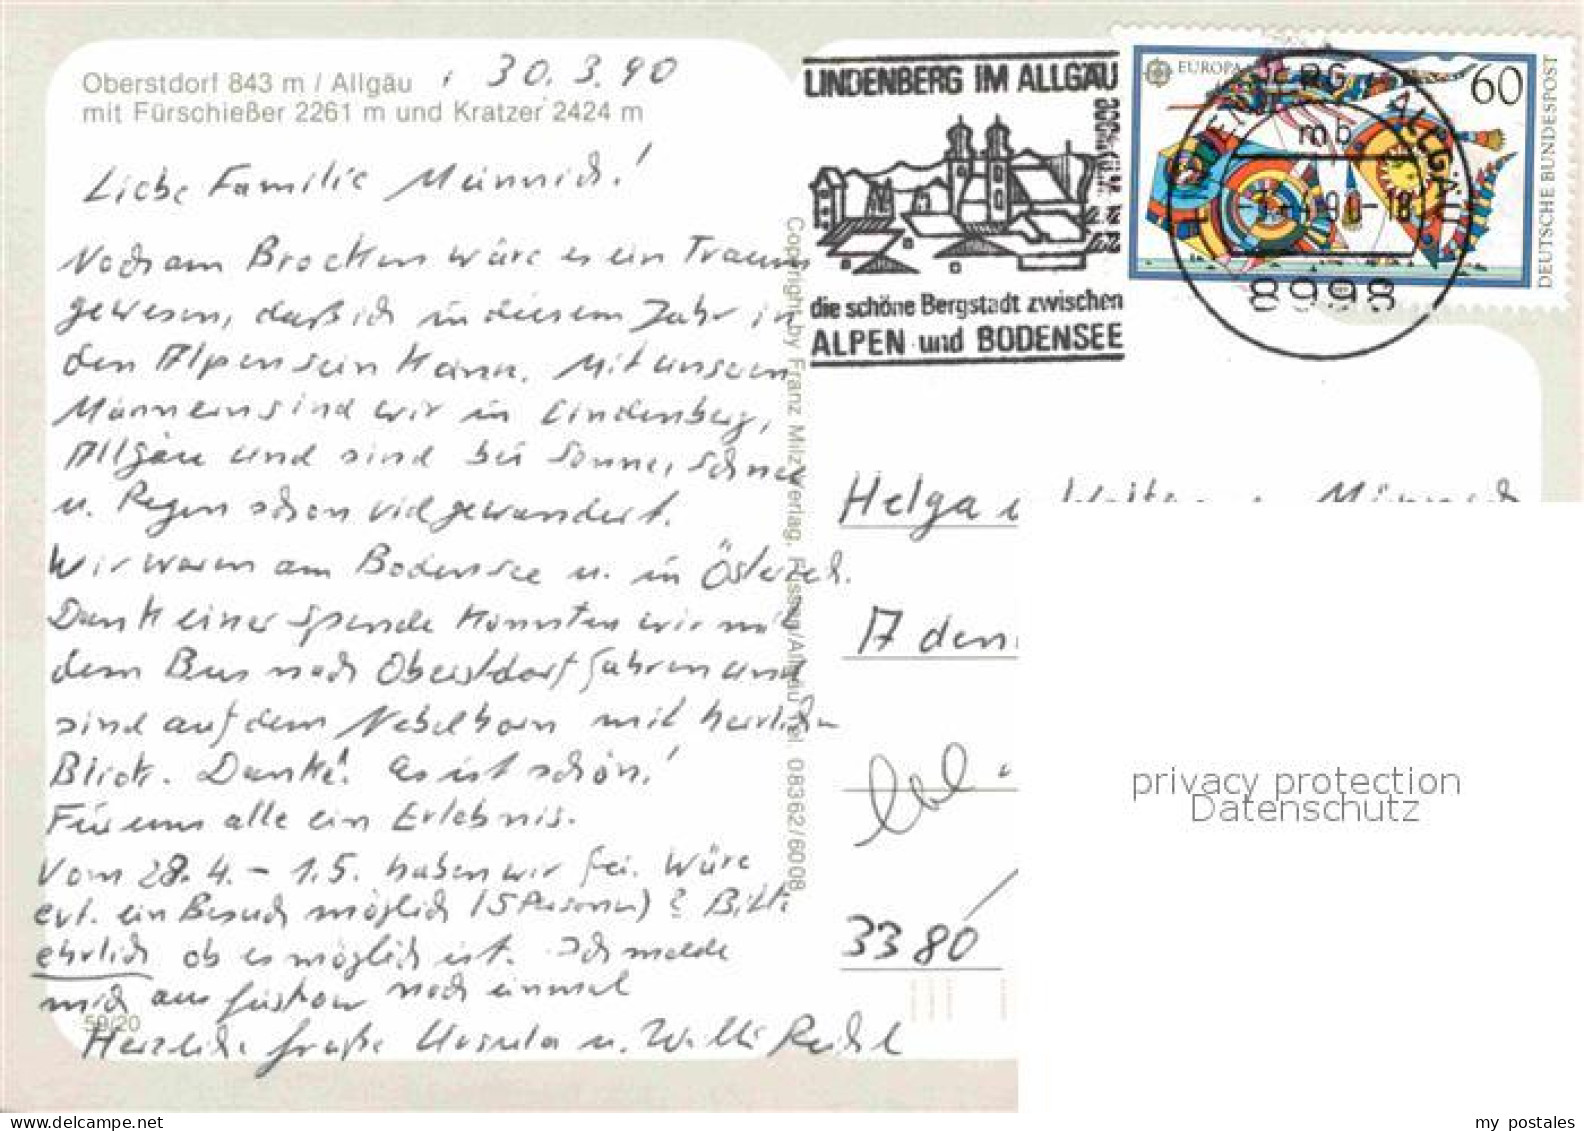 Oberstdorf 843 m / Allgäu , 30.3.90
mit Fürschießer 2261 m und Kratzer 2424 m
Liebe Familie Meinnich!
Noch am Brocken wäre es ein Traum
gewesen, daß ich in diesem Jahr in
den Alpen sein kann. Mit unseren
Männern sind wir in Lindenberg,
Allgäu und sind bei Sonne, Schnee
u. Regen schon viel gewandert.
Wir waren am Bodensee u. in Österreich.
Dank einer Spende konnten wir mit
dem Bus nach Oberstdorf fahren und
sind auf dem Nebelhorn mit herrlichem
Blick. Danke! Es ist schön!
Für uns alle ein Erlebnis.
Vom 28.4. - 1.5. haben wir frei. Wäre
evt. ein Besuch möglich (5 Personen)? Bitte
ehrlich ob es möglich ist. Ich melde
mich aus Güstrow noch einmal
59/20
Herzliche Grüße Ursula u. Willi
Copyright by Franz Milz Verlag, Füssen/Allgäu Tel. 08362/6008
LINDENBERG IM ALLGÄU
die schöne Bergstadt zwischen
ALPEN und BODENSEE
EUROPA
60
DEUTSCHE BUNDESPOST
LINDENBERG, ALLGÄU
mb
8998
Helga
3380
privacy protection
Datenschutz
delcampe.net
my postales